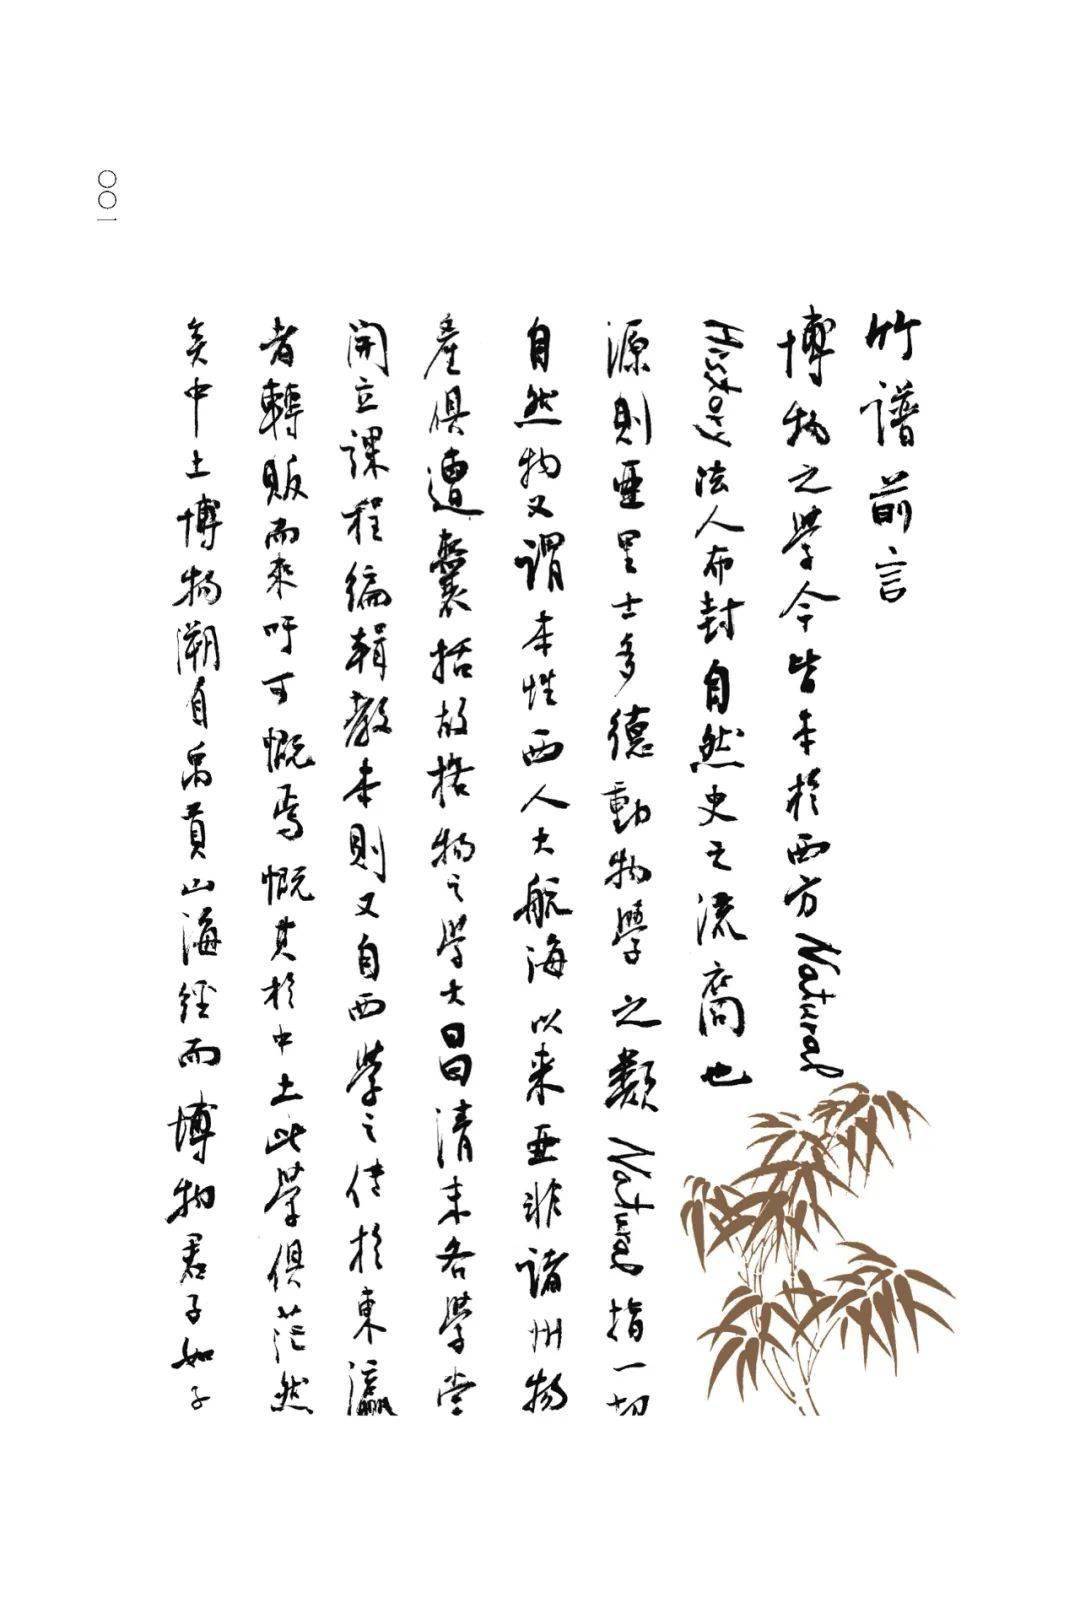 竹谱前言
博物之學今皆本於西方Natural
History法人布封自然史之流裔也
源則亜里士多德動物學之類Natural指一切
自然物又謂本性西人大航海以来亜非諸州物
產俱遭囊括故格物之學大昌清末各學堂
開立課程编輯教本則又自西學之传於東瀛
者轉販而来吁可慨焉慨其於中土此學俱茫然
矣中土博物溯自禹貢山海經而博物君子如子
〇〇一